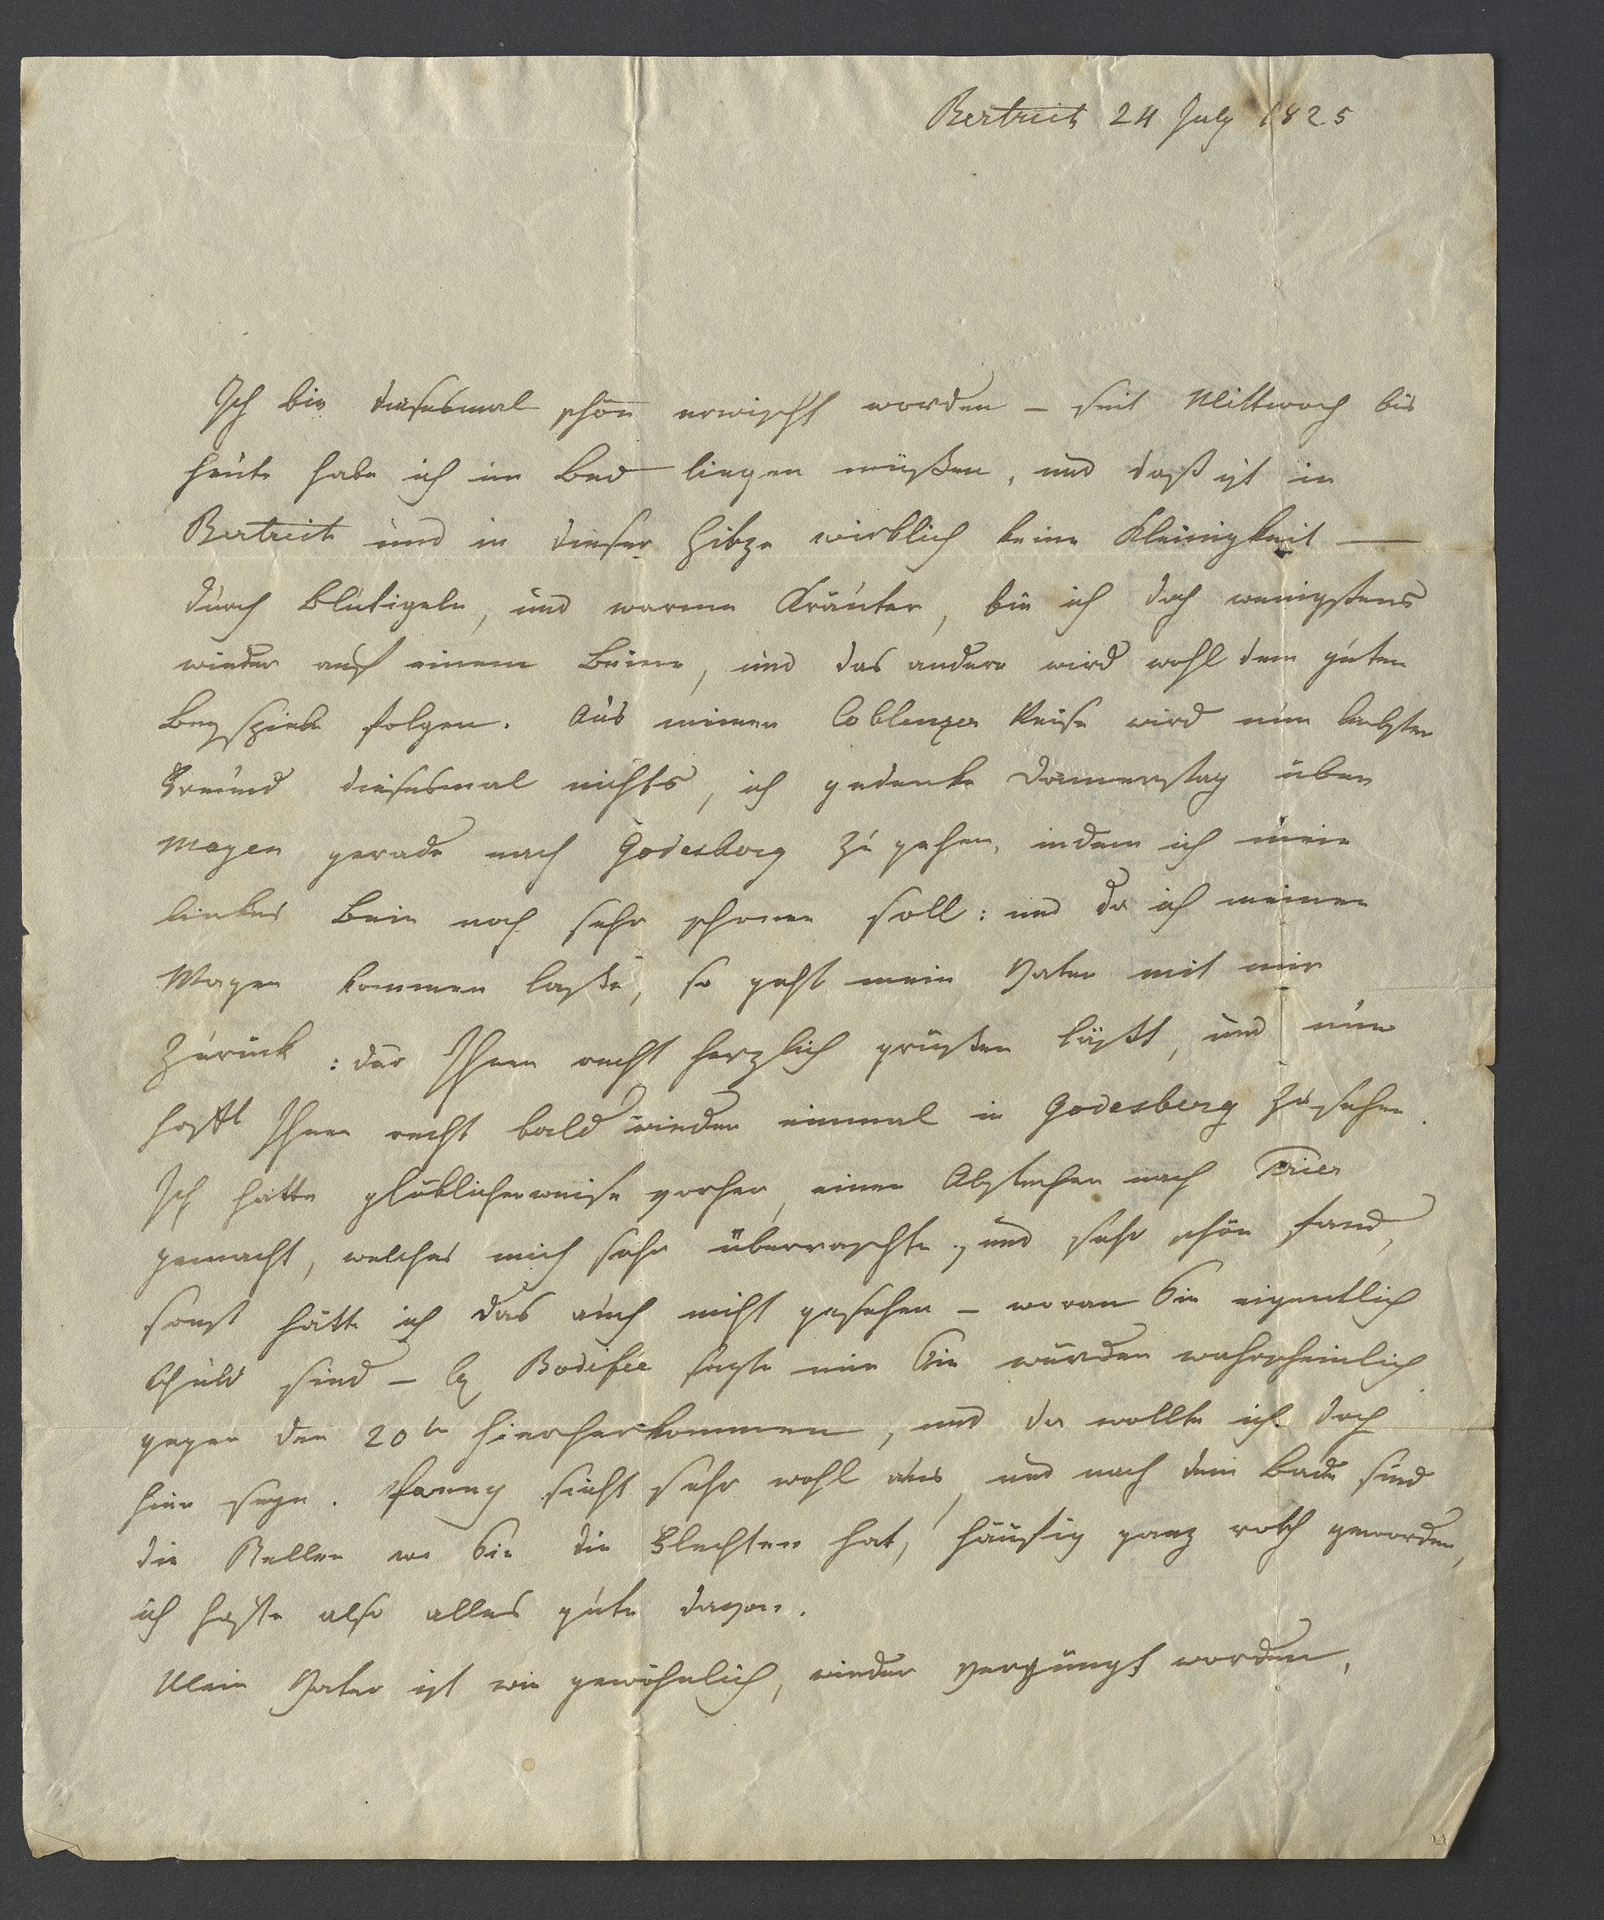 Bertrich 24 July 1825
Ich bin diesesmal schön erwischt worden – seit Mittwoch bis
heute habe ich im Bed liegen müßen, und daß ist in
Bertrich und in dieser Hitze wirklich keine Kleinigkeit —
durch Blutigeln, und warme Kräuter, bin ich doch wenigstens
wieder auf einem Beine, und das andere wird wohl dem guten
Beyspiele folgen. Aus meiner Coblenzer Reise wird nun bester
Freund diesesmal nichts, ich gedenke Donnerstag über
Mayen gerade nach Godesberg zu gehen, indem ich mein
linkes Bein noch sehr schonen soll: und da ich meinen
Wagen kommen laße, so geht mein Vater mit mir
zurück: der Ihnen recht herzlich grüßen läßt, und nun
hofft Ihnen recht bald wieder einmal in Godesberg zu sehen.
Ich hatte glüklicherweise vorher, einen Abstecher nach Trier
gemacht, welches mich sehr überraschte, und sehr schön fand,
sonst hätte ich das auch nicht gesehen – woran Sie eigentlich
Schuld sind – Bodifée sagte mir Sie würden wahrscheinlich
gegen den 20ten hierherkommen, und da wollte ich doch
hier seyn. Fanny sieht sehr wohl aus, und nach dem Bade sind
die Stellen wo Sie die Flechten hat, häufig ganz roth geworden,
ich hoffe also alles gute davon.
Mein Vater ist wie gewöhnlich, wieder verjüngt worden,